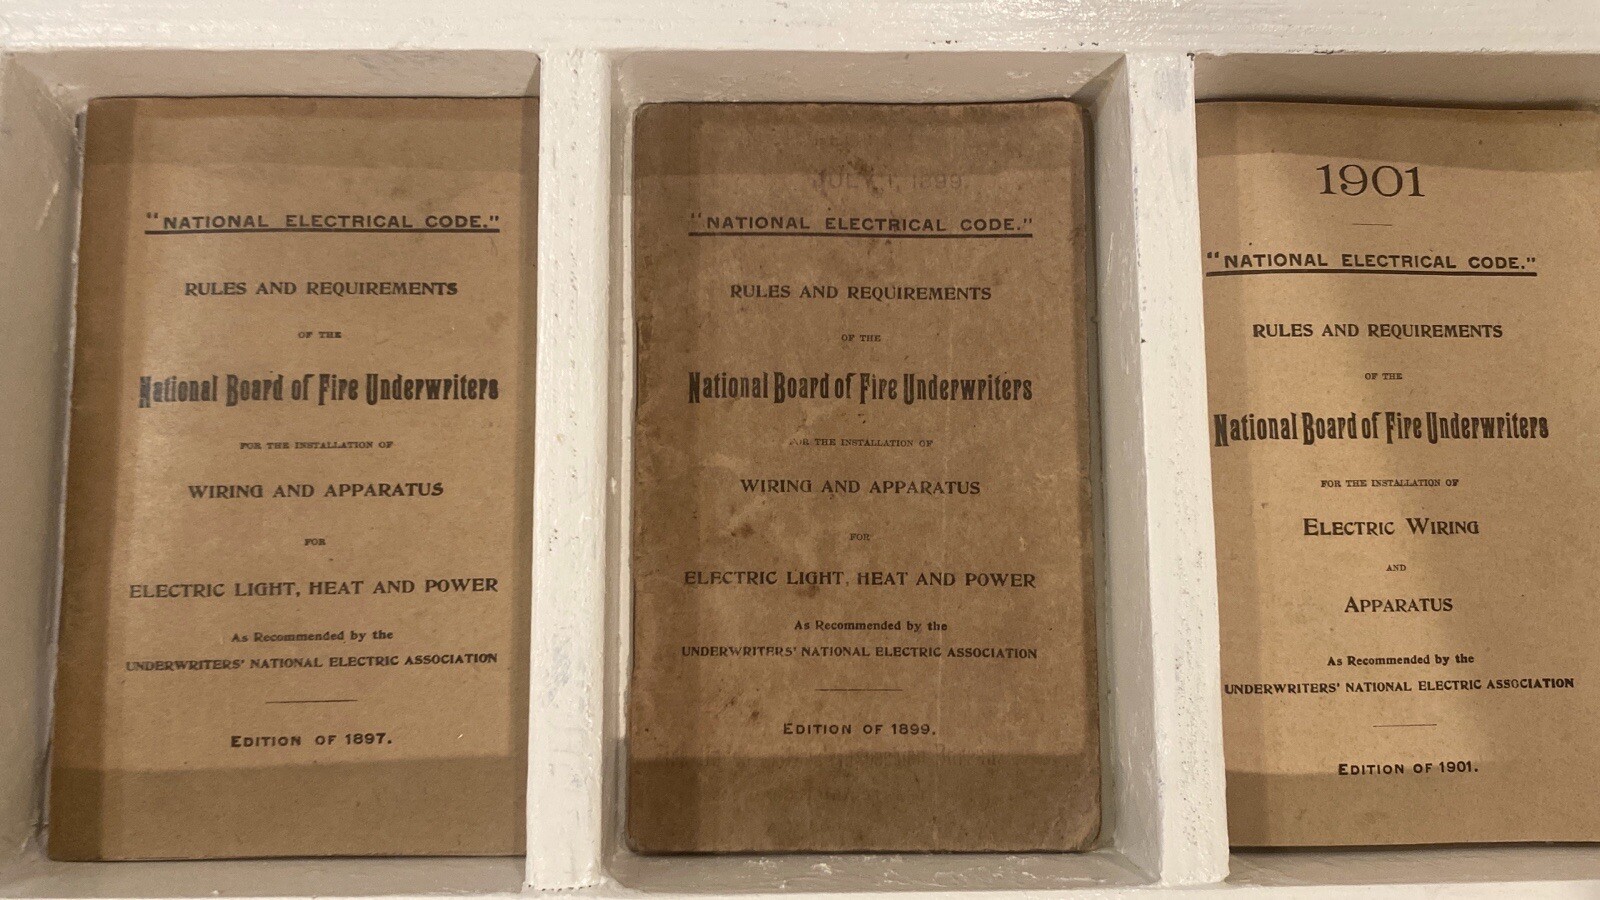 "NATIONAL ELECTRICAL CODE."
RULES AND REQUIREMENTS
OF THE
National Board of Fire Underwriters
FOR THE INSTALLATION OF
WIRING AND APPARATUS
FOR
ELECTRIC LIGHT, HEAT AND POWER
As Recommended by the
UNDERWRITERS' NATIONAL ELECTRIC ASSOCIATION
EDITION OF 1897.
JULY 1, 1899.
"NATIONAL ELECTRICAL CODE."
RULES AND REQUIREMENTS
OF THE
National Board of Fire Underwriters
FOR THE INSTALLATION OF
WIRING AND APPARATUS
FOR
ELECTRIC LIGHT, HEAT AND POWER
As Recommended by the
UNDERWRITERS' NATIONAL ELECTRIC ASSOCIATION
EDITION OF 1899.
1901
"NATIONAL ELECTRICAL CODE."
RULES AND REQUIREMENTS
OF THE
National Board of Fire Underwriters
FOR THE INSTALLATION OF
ELECTRIC WIRING
AND
APPARATUS
As Recommended by the
UNDERWRITERS' NATIONAL ELECTRIC ASSOCIATION
EDITION OF 1901.